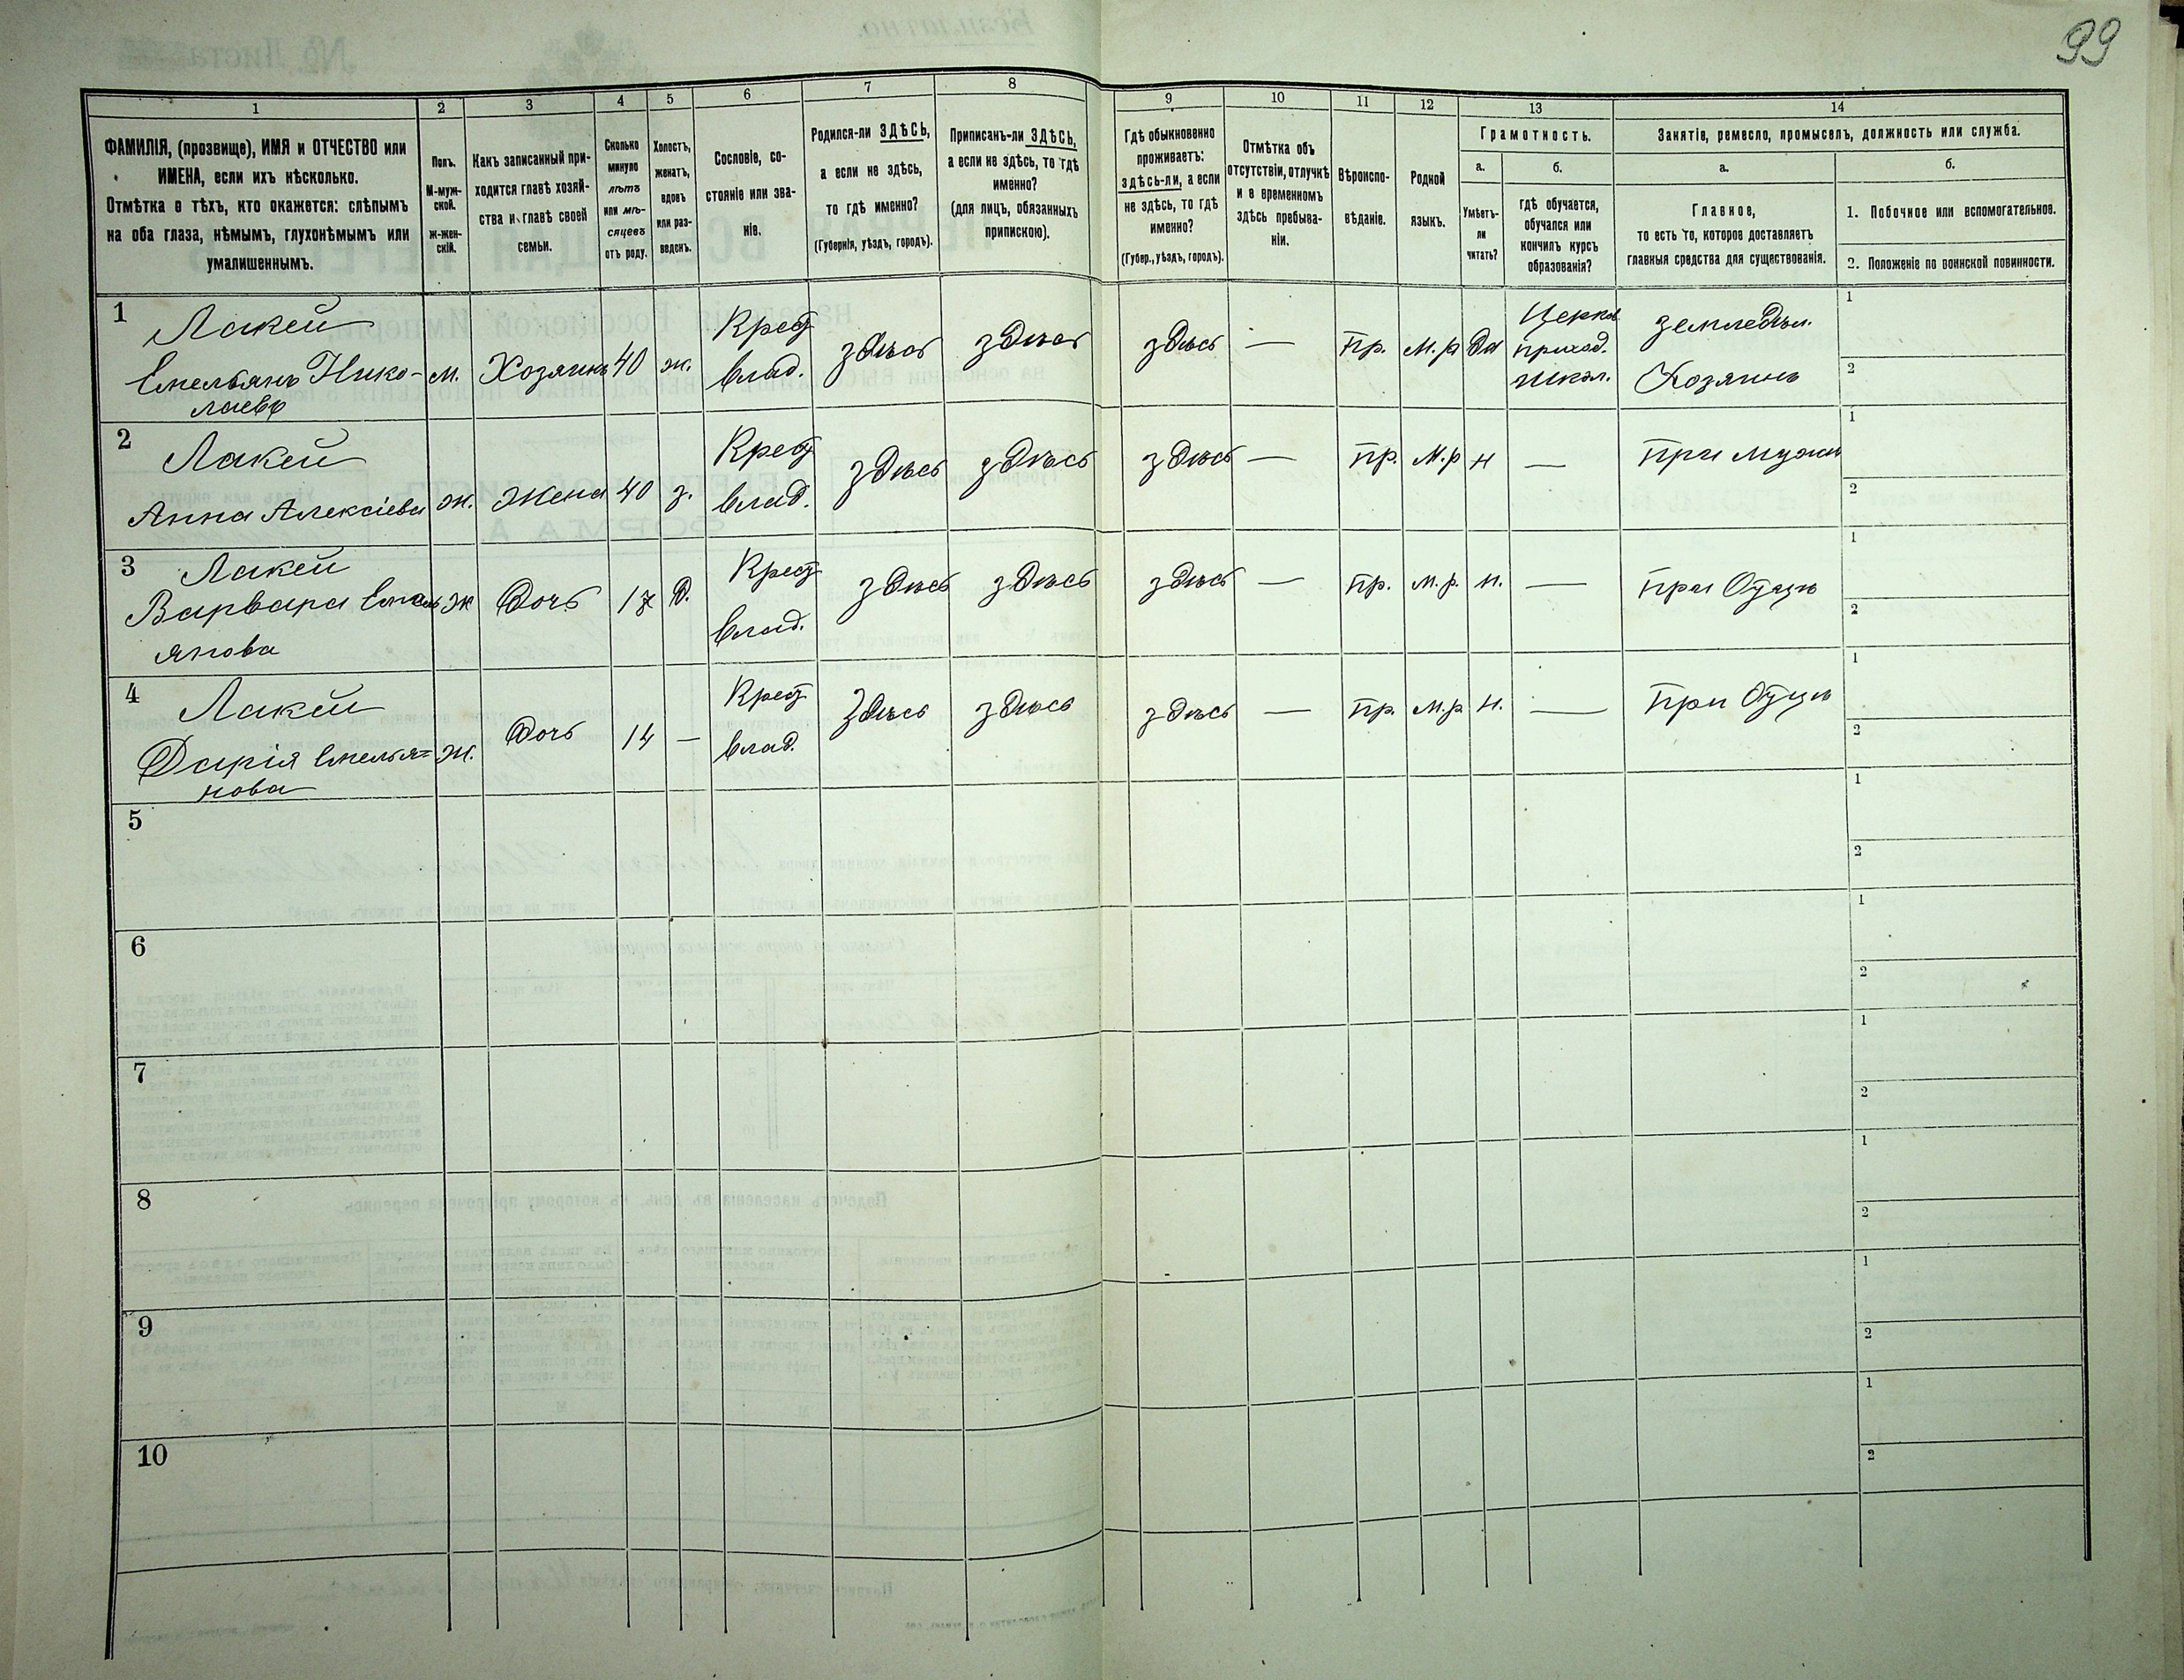 99
1
2
3
4
5
6
7
8
9
10
11
12
13
14
ФАМИЛІЯ, (прозвище), ИМЯ и ОТЧЕСТВО или
ИМЕНА, если ихъ нѣсколько.
Отмѣтка о тѣхъ, кто окажется: слѣпымъ
на оба глаза, нѣмымъ, глухонѣмымъ или
умалишеннымъ.
Полъ.
М-муж-
ской.
ж-жен-
скій.
Какъ записанный при-
ходится главѣ хозяй-
ства и главѣ своей
семьи.
Сколько
минуло
лѣтъ
или мѣ-
сяцевъ
отъ роду.
Холостъ,
женатъ,
вдовъ
или раз-
веденъ.
Сословіе, со-
стояніе или зва-
ніе.
Родился-ли ЗДѢСЬ,
а если не здѣсь,
то гдѣ именно?
(Губернія, уѣздъ, городъ).
Приписанъ-ли ЗДѢСЬ,
а если не здѣсь, то гдѣ
именно?
(для лицъ, обязанныхъ
припискою).
Гдѣ обыкновенно
проживаетъ:
здѣсь-ли, а если
не здѣсь, то гдѣ
именно?
(Губер., уѣздъ, городъ).
Отмѣтка объ
отсутствіи, отлучкѣ
и в временномъ
здѣсь пребыва-
ніи.
Вѣроиспо-
вѣданіе.
Родной
языкъ.
Грамотность.
а.
Умѣетъ-
ли
читать?
б.
гдѣ обучается,
обучался или
кончилъ курсъ
образованія?
Занятіе, ремесло, промыселъ, должность или служба.
а.
Главное,
то есть то, которое доставляетъ
главныя средства для существованія.
б.
1. Побочное или вспомогательное.
2. Положеніе по воинской повинности.
1
Лакей
Емельянъ Нико-
лаевъ
м.
Хозяинъ
40
ж.
Крест
влад.
здѣсь
здѣсь
здѣсь
—
пр.
м.р
да
Церков
приход.
школ.
земледѣл.
Хозяинъ
1
2
2
Лакей
Анна Алексіева
ж.
жена
40
з.
Крест
влад.
здѣсь
здѣсь
здѣсь
—
пр.
м.р
н
—
при мужѣ
1
2
3
Лакей
Варвара Емель
янова
ж
Дочь
17
д.
Крест
влад.
здѣсь
здѣсь
здѣсь
—
пр.
м.р.
н.
—
при Отцѣ
1
2
4
Лакей
Дарія Емелья=
нова
ж.
Дочь
14
—
Крест
влад.
здѣсь
здѣсь
здѣсь
—
пр.
м.р
н.
—
при Отцѣ
1
2
5
1
2
6
1
2
7
1
2
8
1
2
9
1
2
10
1
2